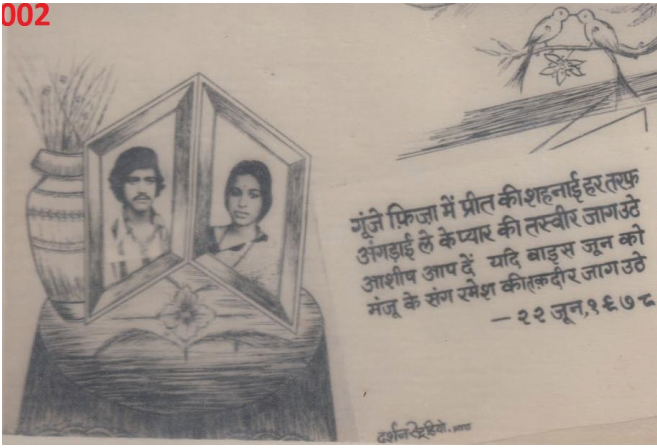 002
गूंजे फ़िजा में प्रीत की शहनाई हर तरफ़
अंगड़ाई ले के प्यार की तस्वीर जाग उठे
आशीष आप दें यदि बाइस जून को
मंजू के संग रमेश की तक़दीर जाग उठे
– २२ जून, १९७८
दर्शन स्टूडियो.